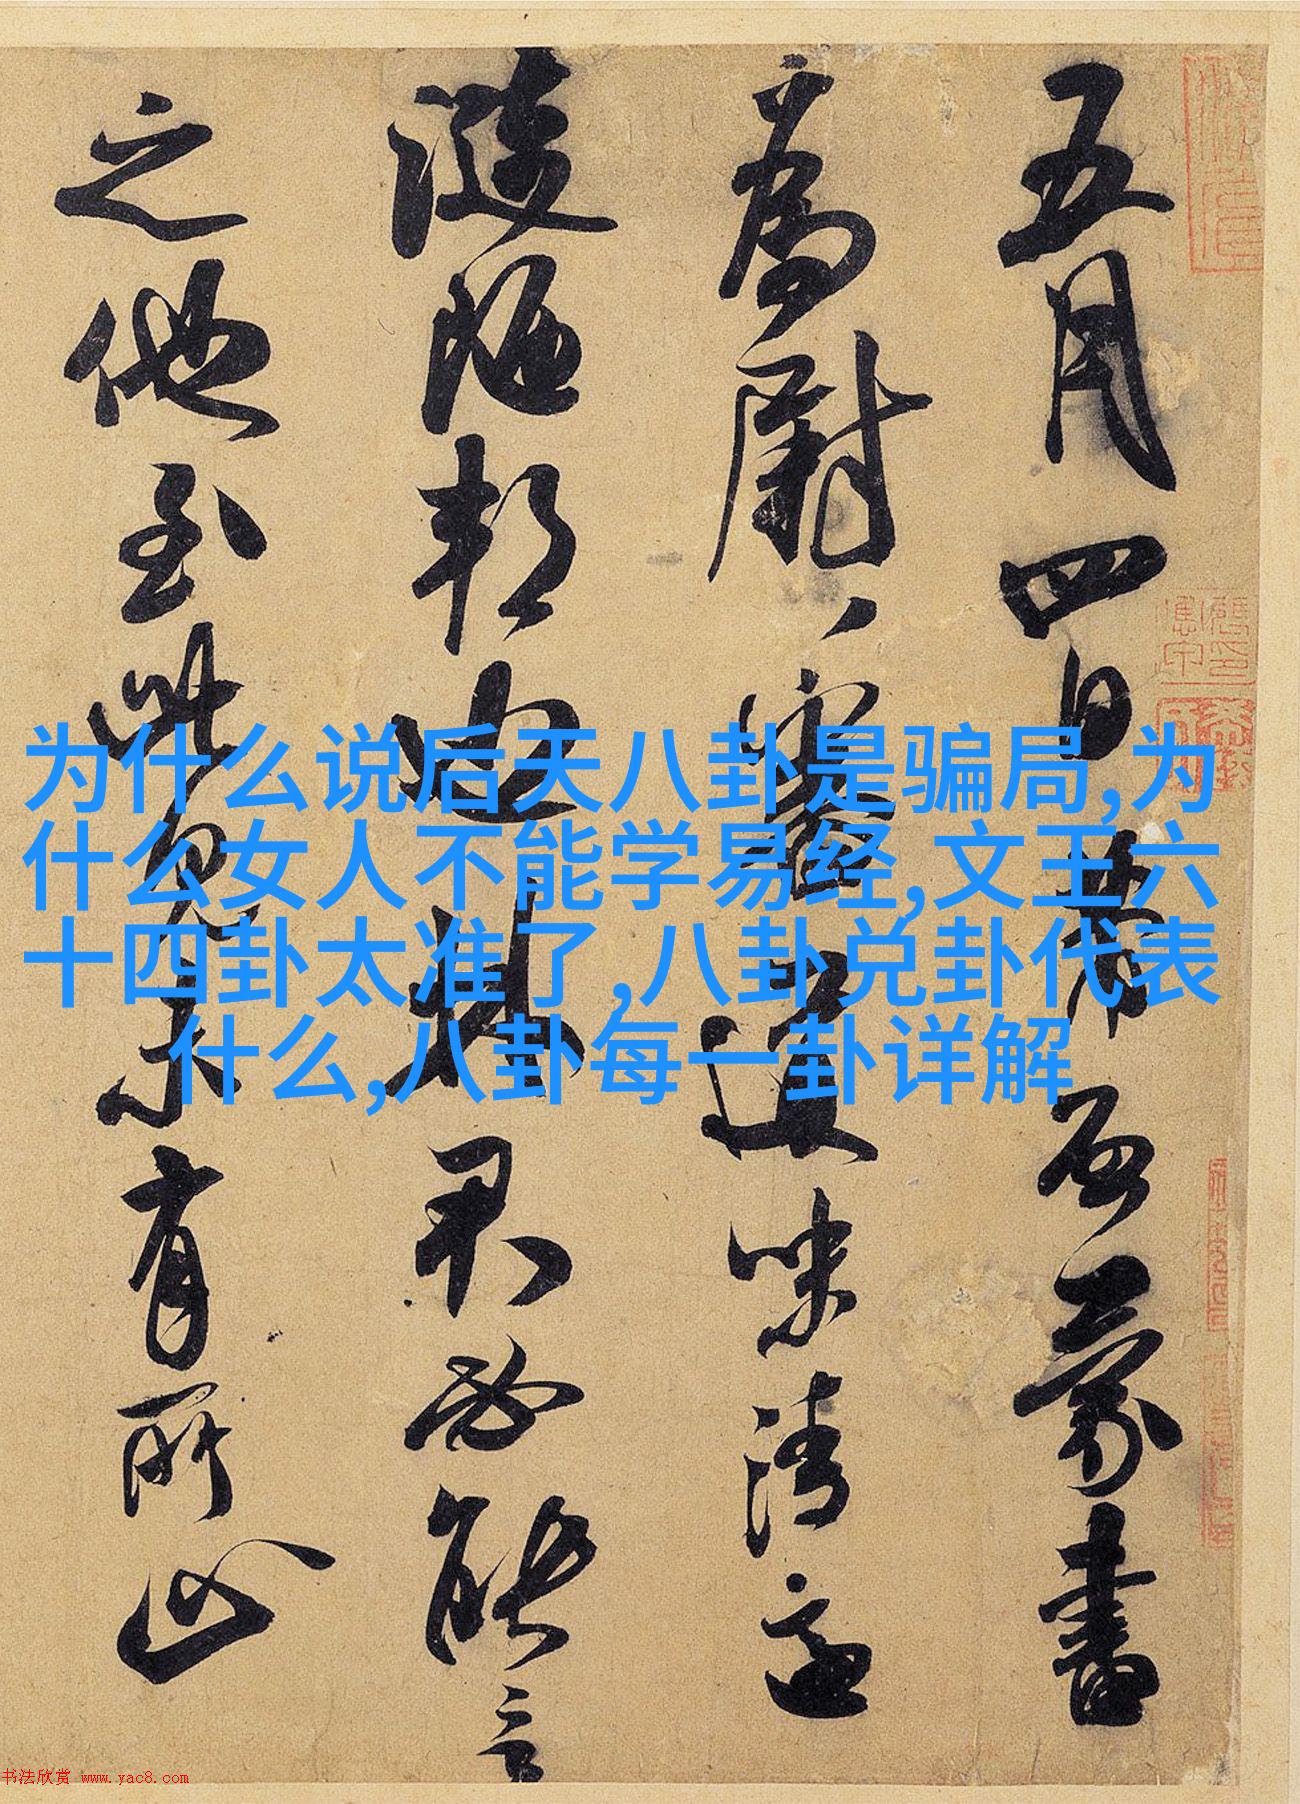 五月四日芾启蒙书
为慰
味清适
陋邦
君必能言
之他至此见未有所止
为什么说后天八卦是骗局,为
什么女人不能学易经,文王六
十四卦太准了,八卦兑卦代表
什么,八卦每一卦详解
书法欣赏 www.yac8.com